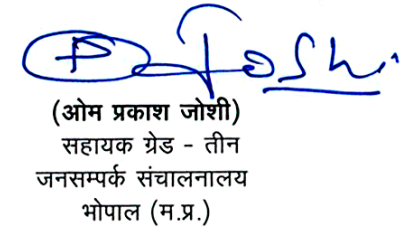 Joshi
(ओम प्रकाश जोशी)
सहायक ग्रेड - तीन
जनसम्पर्क संचालनालय
भोपाल (म.प्र.)